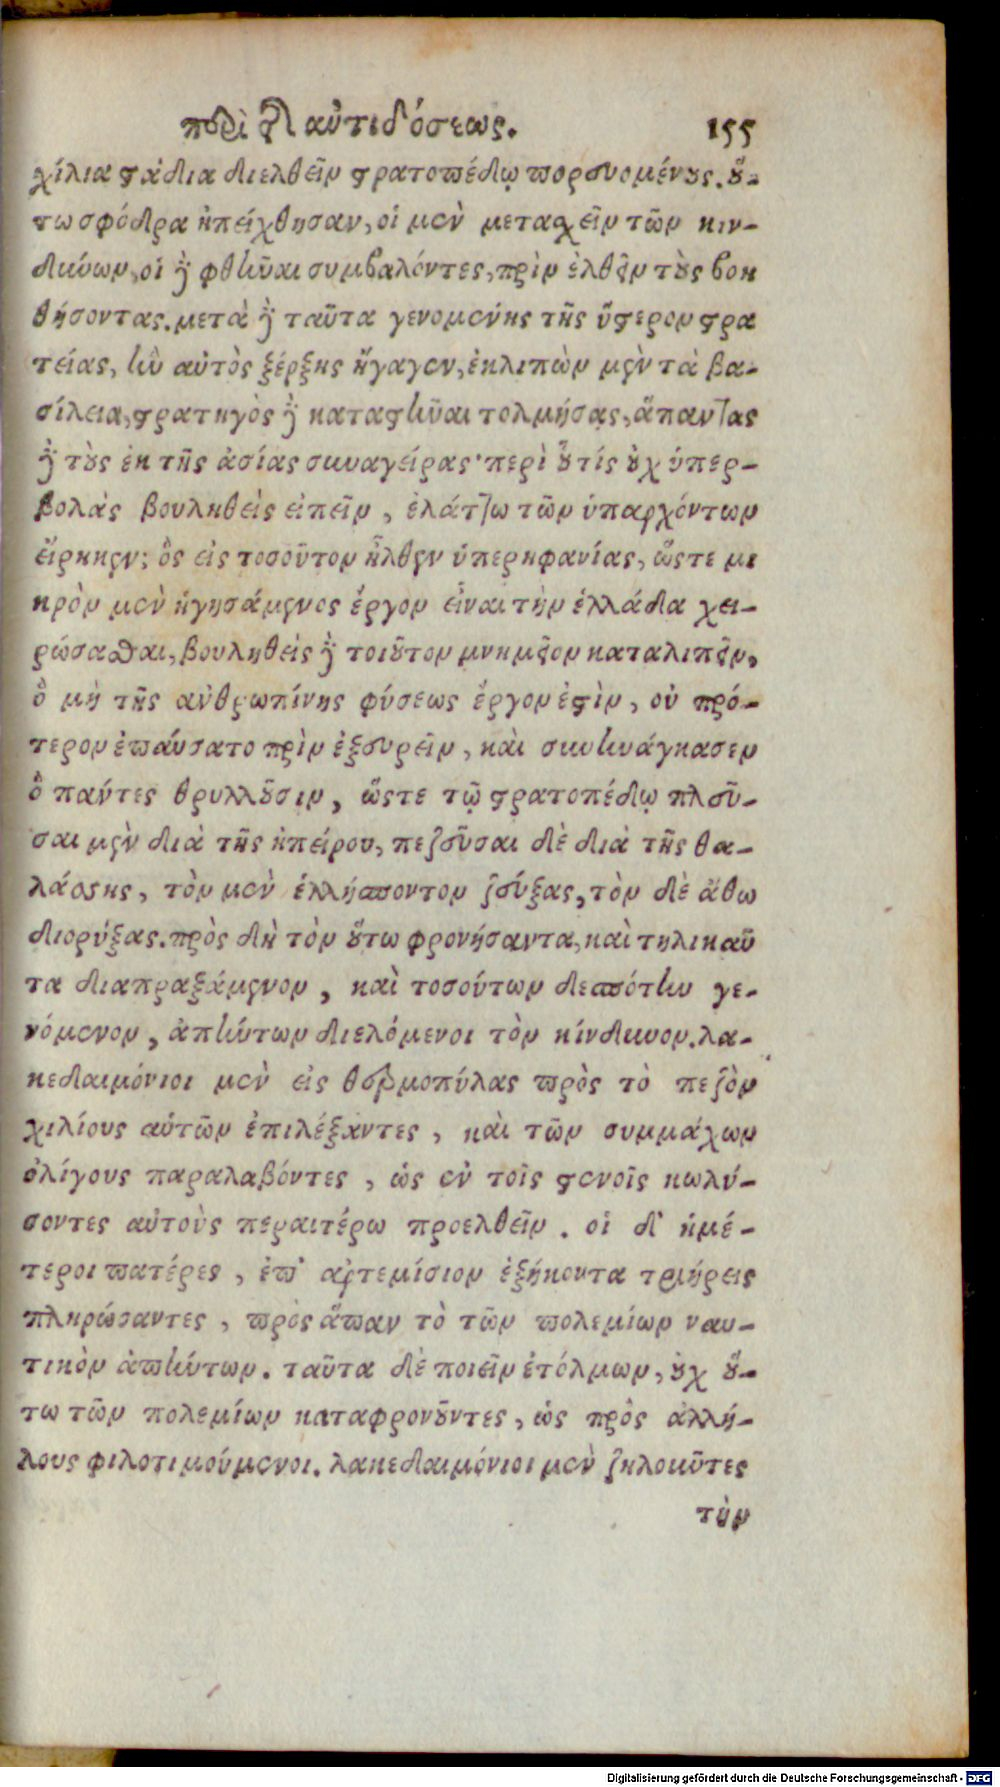 περὶ τῆς ἀντιδόσεως. 155
χίλια στάδια διελθεῖν στρατοπέδῳ πορευομένους. οὕ-
τω σφόδρα ἠπείχθησαν, οἱ μὲν μετασχεῖν τῶν κιν-
δύνων, οἱ δὲ φθῆναι συμβαλόντες, πρὶν ἐλθεῖν τοὺς βοη
θήσοντας. μετὰ δὲ ταῦτα γενομένης τῆς ὕστερον στρα
τείας, ἣν αὐτὸς ξέρξης ἤγαγεν, ἐκλιπὼν μὲν τὰ βα-
σίλεια, στρατηγὸς δὲ καταστῆναι τολμήσας, ἅπαντας
δὲ τοὺς ἐκ τῆς ἀσίας συναγείρας· περὶ οὗ τίς οὐχ ὑπερ-
βολὰς βουληθεὶς εἰπεῖν, ἐλάττω τῶν ὑπαρχόντων
εἴρηκεν; ὃς εἰς τοσοῦτον ἦλθεν ὑπερηφανίας, ὥστε μι
κρὸν μὲν ἡγησάμενος ἔργον εἶναι τὴν ἑλλάδα χει-
ρώσασθαι, βουληθεὶς δὲ τοιοῦτον μνημεῖον καταλιπεῖν,
ὃ μὴ τῆς ἀνθρωπίνης φύσεως ἔργον ἐστὶν, οὐ πρό-
τερον ἐπαύσατο πρὶν ἐξευρεῖν, καὶ συνηνάγκασεν
ὃ πάντες θρυλλοῦσιν, ὥστε τῷ στρατοπέδῳ πλεῦ-
σαι μὲν διὰ τῆς ἠπείρου, πεζεῦσαι δὲ διὰ τῆς θα-
λάσσης, τὸν μὲν ἑλλήσποντον ζεύξας, τὸν δὲ ἄθω
διορύξας. πρὸς δὴ τὸν οὕτω φρονήσαντα, καὶ τηλικαῦ
τα διαπραξάμενον, καὶ τοσούτων δεσπότην γε-
νόμενον, ἀπήντων διελόμενοι τὸν κίνδυνον. λα-
κεδαιμόνιοι μὲν εἰς θερμοπύλας πρὸς τὸ πεζὸν
χιλίους αὑτῶν ἐπιλέξαντες, καὶ τῶν συμμάχων
ὀλίγους παραλαβόντες, ὡς ἐν τοῖς στενοῖς κωλύ-
σοντες αὐτοὺς περαιτέρω προελθεῖν. οἱ δ' ἡμέ-
τεροι πατέρες, ἐπ' ἀρτεμίσιον ἑξήκοντα τριήρεις
πληρώσαντες, πρὸς ἅπαν τὸ τῶν πολεμίων ναυ-
τικὸν ἀπήντων. ταῦτα δὲ ποιεῖν ἐτόλμων, οὐχ οὕ-
τω τῶν πολεμίων καταφρονοῦντες, ὡς πρὸς ἀλλή-
λους φιλοτιμούμενοι. λακεδαιμόνιοι μὲν ζηλοῦντες
τὴν
Digitalisierung gefördert durch die Deutsche Forschungsgemeinschaft - DFG